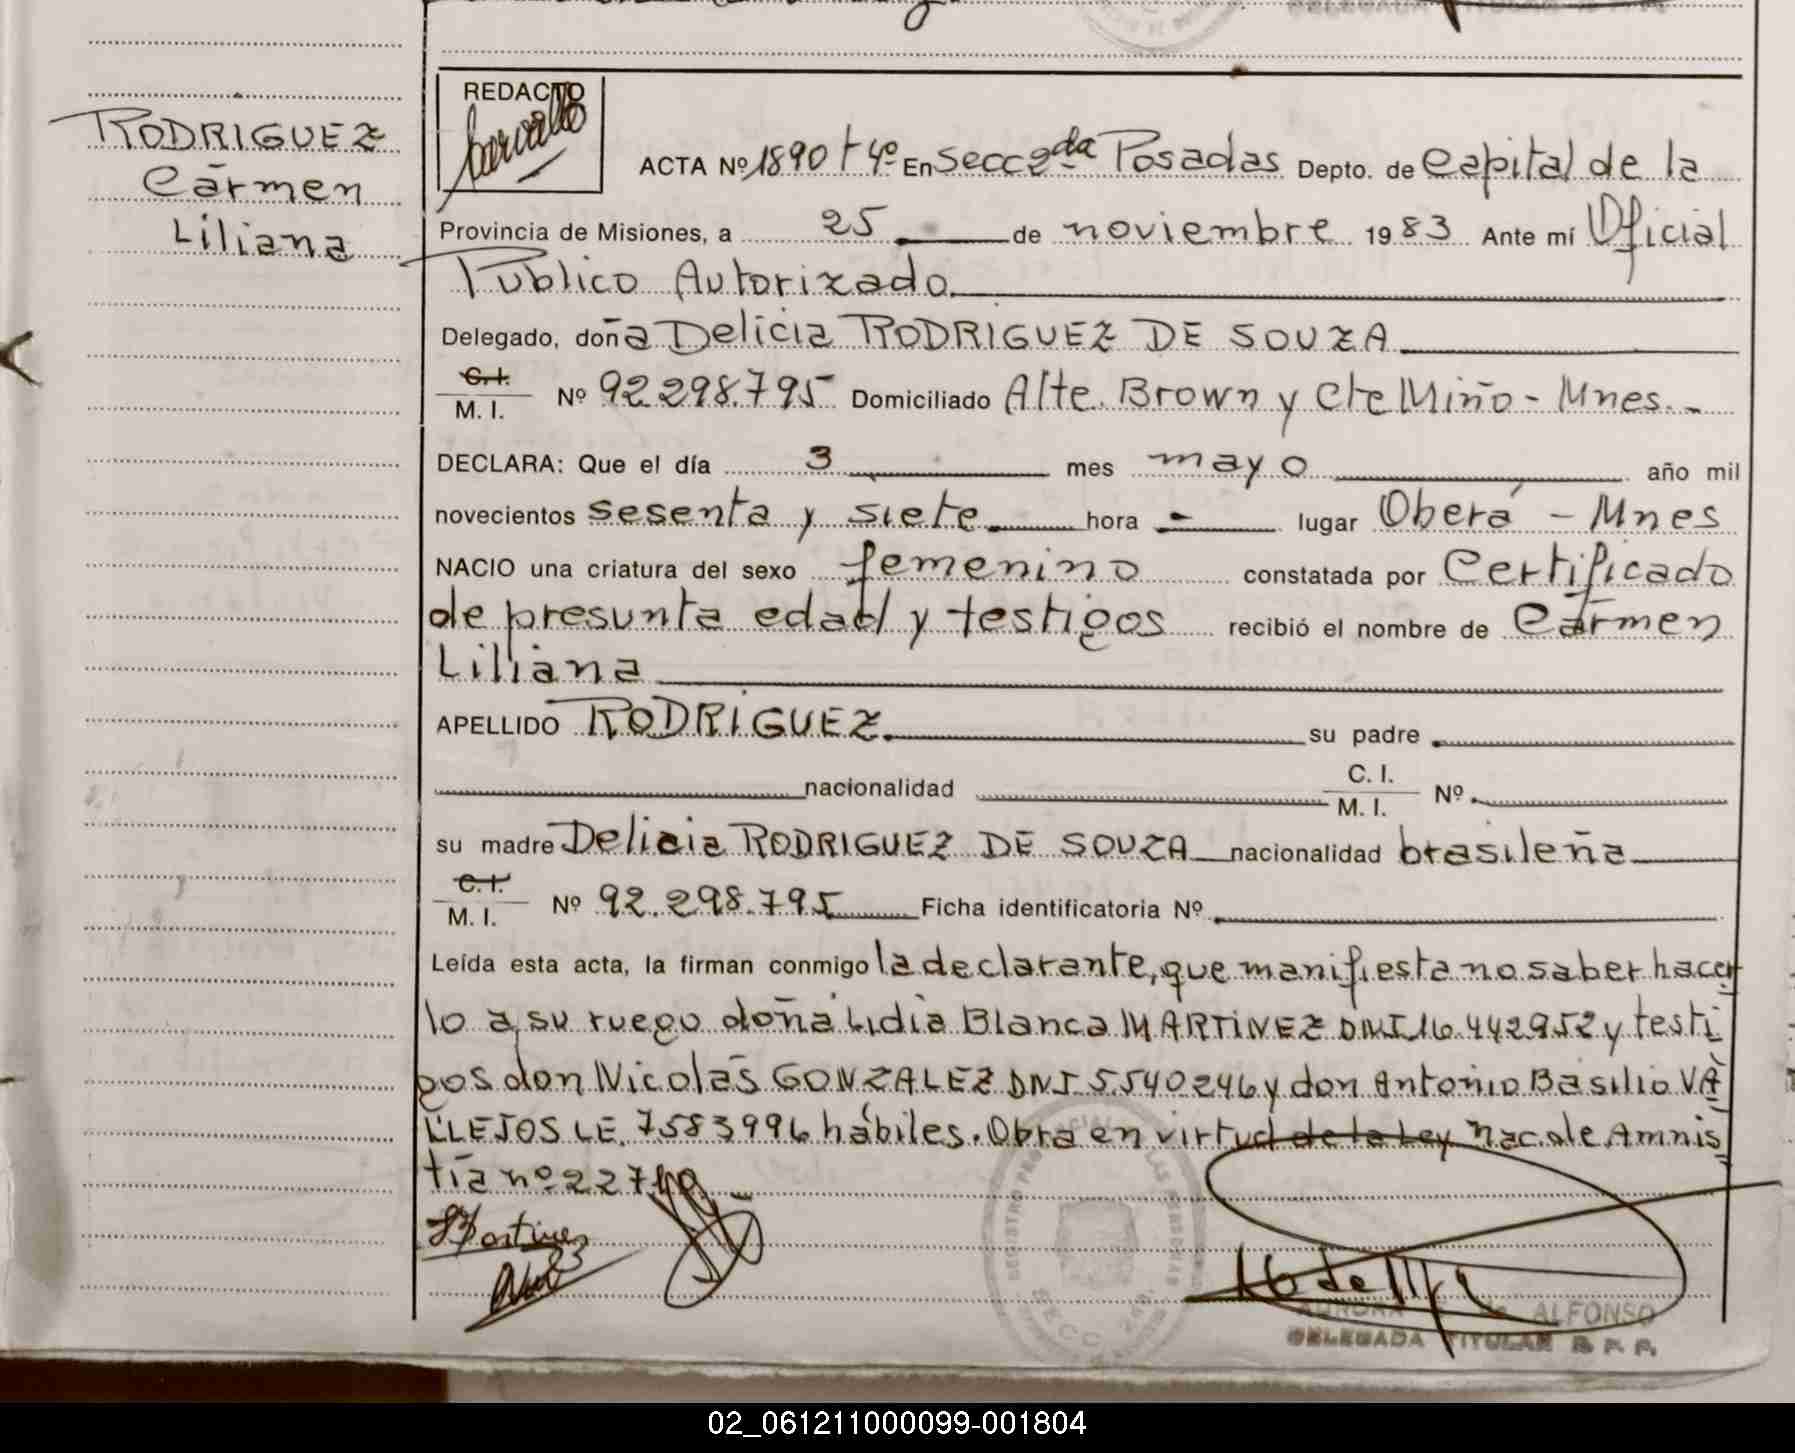 RODRIGUEZ
Cármen
Liliana
REDACTO
ACTA Nº 1890 tº 4º En Secc 2da Posadas Depto. de Capital de la
Provincia de Misiones, a 25 de noviembre 1983 Ante mí Oficial
Publico Autorizado
Delegado, doña Delicia RODRIGUEZ DE SOUZA
C.I.
M. I. Nº 92.298.795 Domiciliado Alte. Brown y Cte Miño - Mnes. -
DECLARA: Que el día 3 mes mayo año mil
novecientos sesenta y siete hora - lugar Oberá - Mnes
NACIO una criatura del sexo femenino constatada por Certificado
de presunta edad y testigos recibió el nombre de Cármen
Liliana
APELLIDO RODRIGUEZ su padre
nacionalidad C. I.
M. I. Nº
su madre Delicia RODRIGUEZ DE SOUZA nacionalidad brasileña
C.I.
M. I. Nº 92.298.795 Ficha identificatoria Nº
Leída esta acta, la firman conmigo la declarante, que manifiesta no saber hacer
lo a su ruego doña Lidia Blanca MARTINEZ DNI 16.442952 y testi
gos don Nicolás GONZALEZ DNI 5.540246 y don Antonio Basilio VA
LLEJOS LE. 7583996 hábiles. Obra en virtud de la Ley Nac. de Amnis
tía nº 22740. -
ALFONSO
DELEGADA TITULAR R. P. P.
02_061211000099-001804